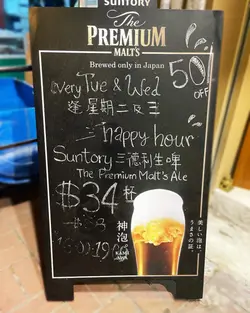 SUNTORY
The
PREMIUM
MALT'S
Brewed only in Japan
50
OFF
Every Tue & Wed
逢星期二及三
happy hour
Suntory 三德利生啤
The Premium Malt's Ale
$34 杯
神泡
KAMI
AWA
美しい泡は、
うまさの証。